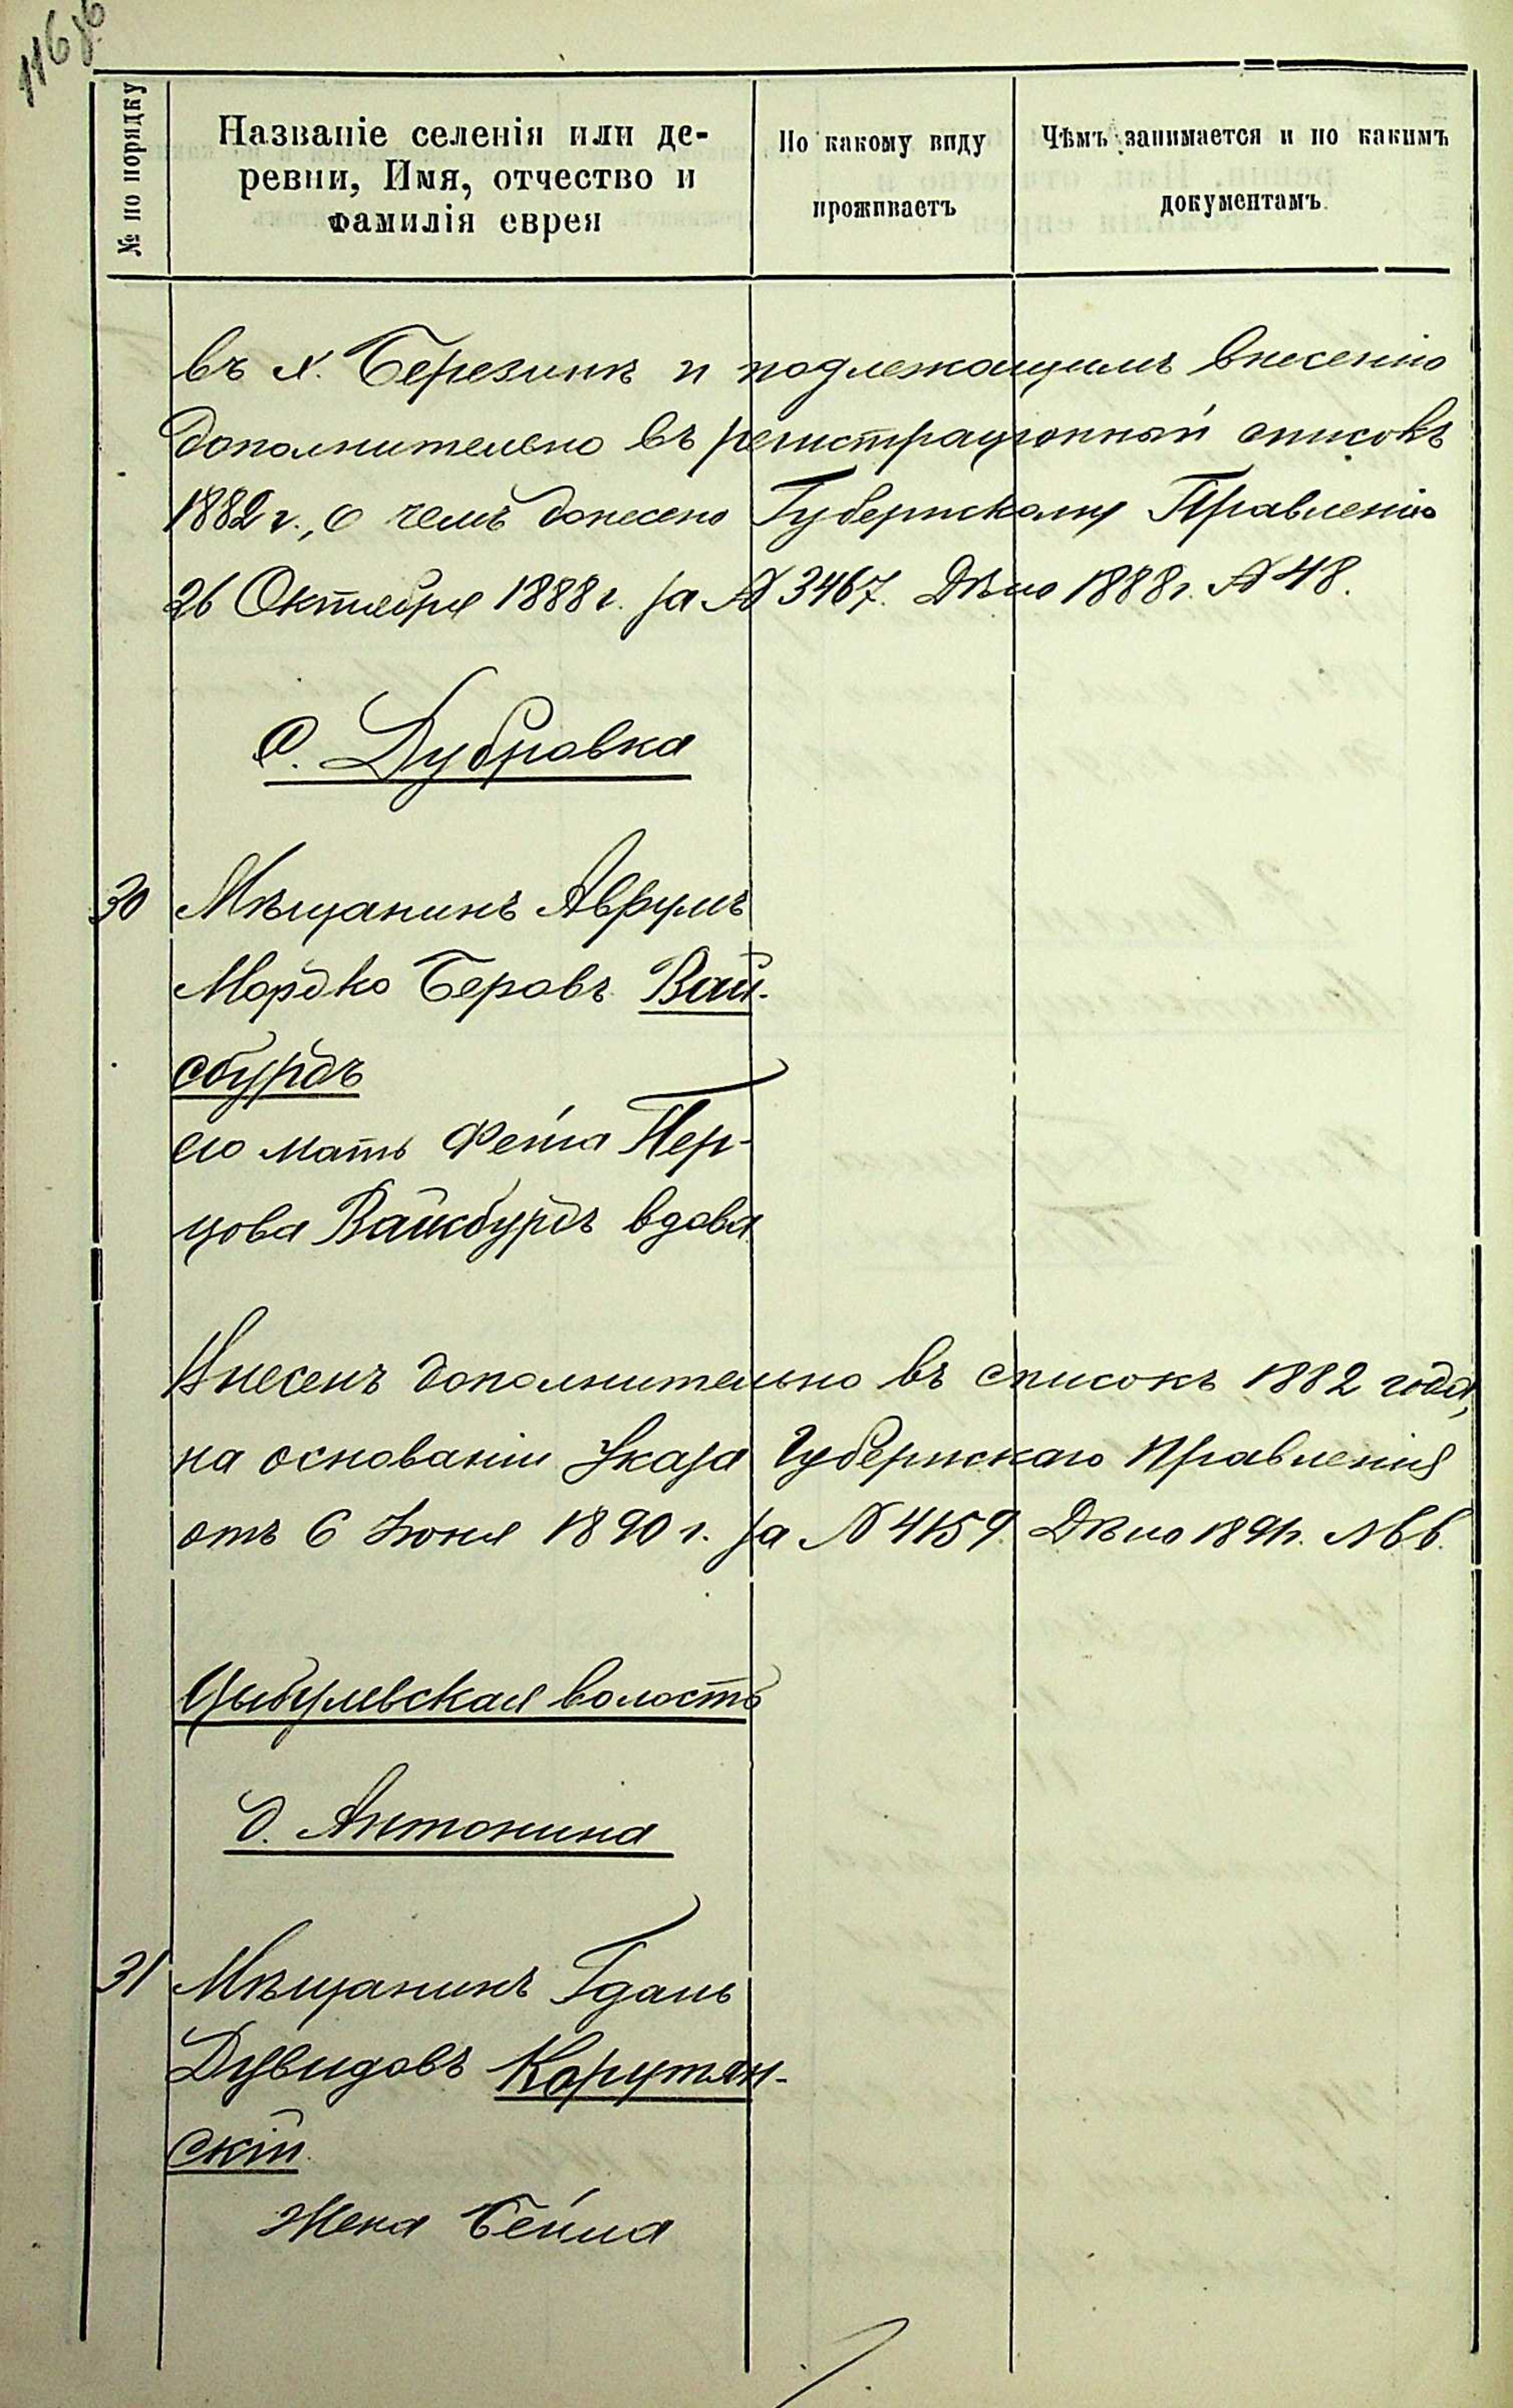 116 об
№ по порядку
Названіе селенія или де-
ревни, Имя, отчество и
фамилія еврея
По какому виду
проживаетъ
Чѣмъ занимается и по какимъ
документамъ.
въ х. Березинѣ и подлежащимъ внесенію
дополнительно въ регистраціонный списокъ
1882 г., о чемъ донесено Губернскому Правленію
26 Октября 1888 г. за № 3467. Дѣло 1888 г. № 48.
С. Дубровка
30 Мѣщанинъ Аврумъ
Мордко Беровъ Вай-
сбурдъ
его мать Фейга Гер-
цова Вайсбурдъ вдова
Внесенъ дополнительно въ списокъ 1882 года,
на основаніи Указа Губернскаго Правленія
отъ 6 Іюня 1890 г. за № 4159. Дѣло 1891 г. №
Цыбулевская волость
д. Антонина
31 Мѣщанинъ Гдаль
Дувидовъ Корутян-
скій.
Жена Бейла